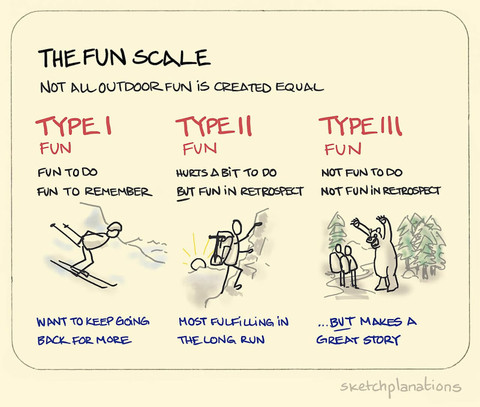 THE FUN SCALE
NOT ALL OUTDOOR FUN IS CREATED EQUAL
TYPE I
FUN
FUN TO DO
FUN TO REMEMBER
WANT TO KEEP GOING
BACK FOR MORE
TYPE II
FUN
HURTS A BIT TO DO
BUT FUN IN RETROSPECT
MOST FULFILLING IN
THE LONG RUN
TYPE III
FUN
NOT FUN TO DO
NOT FUN IN RETROSPECT
...BUT MAKES A
GREAT STORY
sketchplanations